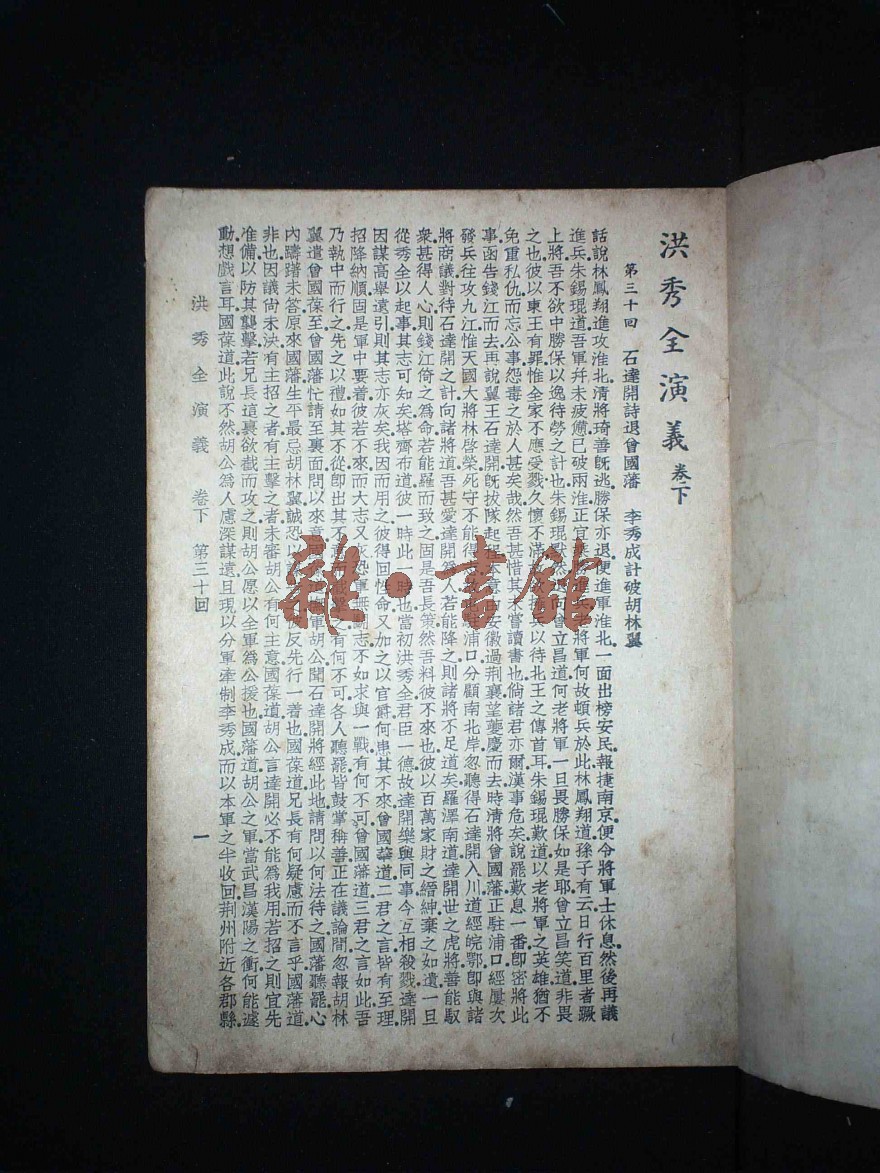 洪秀全演義 卷下
第三十回 石達開詩退曾國藩 李秀成計破胡林翼
話說林鳳翔進攻淮北清將琦善旣逃勝保亦退便進軍淮北一面出榜安民報捷南京便令將軍士休息然後再議
進兵朱錫琨道吾軍幷未疲憊已破兩淮正宜
上將吾不欲中勝保以逸待勞之計也朱錫琨
之也彼以東王有罪惟全家不應受戮久懷不滿
兵以待北王之傳首耳朱錫琨歎道以老將軍之英雄猶不
免重私仇而忘公事怨毒之於人甚矣哉然吾甚惜其未嘗讀書也倘諸君亦爾漢事危矣說罷歎息一番卽密將此
事函告錢江而去再說翼王石達開旣拔隊起程
安徽過荆襄望夔慶而去時清將曾國藩正駐浦口經屢次
發兵往攻九江惟天國大將林啓榮死守不能得
浦口分顧南北岸忽聽得石達開入川道經皖鄂卽與諸
將商議對待石達開之計向諸將道吾甚愛達開爲人若能降之則諸將不足道矣羅澤南道達開世之虎將善能馭
衆甚得人心則錢江倚之爲命若能羅而致之固是吾長策然吾料彼不來也彼以百萬家財之縉紳棄之如遺一旦
從秀全以起事其志可知矣塔齊布道彼一時此一時也當初洪秀全君臣一德故達開樂與同事今互相殺戮達開
因謀高舉遠引則其志亦灰矣我因而用之彼得回性命又加之以官爵何患其不來曾國藩道二君之言皆有至理
招降納順固是軍中要着彼若不來而大志又灰恐軍無鬬志不如求與一戰有何不可曾國藩道三君之言如此吾
乃執中而行之先之以禮如其不從卽出其不意而截擊之有何不可各人聽罷皆鼓掌稱善正在議論間忽報胡林
翼遣曾國葆至曾國藩忙請至裏面問以來意
胡公聞石達開將經此地請問以何法待之國藩聽罷心
內躊躇未答原來國藩生平最忌胡林翼誠恐以
反先行一着也國葆道兄長有何疑慮而不言乎國藩道
非也因議尙未決有主招之者有主擊之者未審胡公有何主意國葆道胡公言達開必不能爲我用若招之則宜先
准備以防其襲擊若兄長這裏欲截而攻之則胡公愿以全軍爲公援也國藩道胡公之軍當武昌漢陽之衝何能遽
動想戲言耳國葆道此說不然胡公爲人慮深謀遠且現以分軍牽制李秀成而以本軍之半收回荆州附近各郡縣
洪秀全演義 卷下 第三十回 一
雜·書館